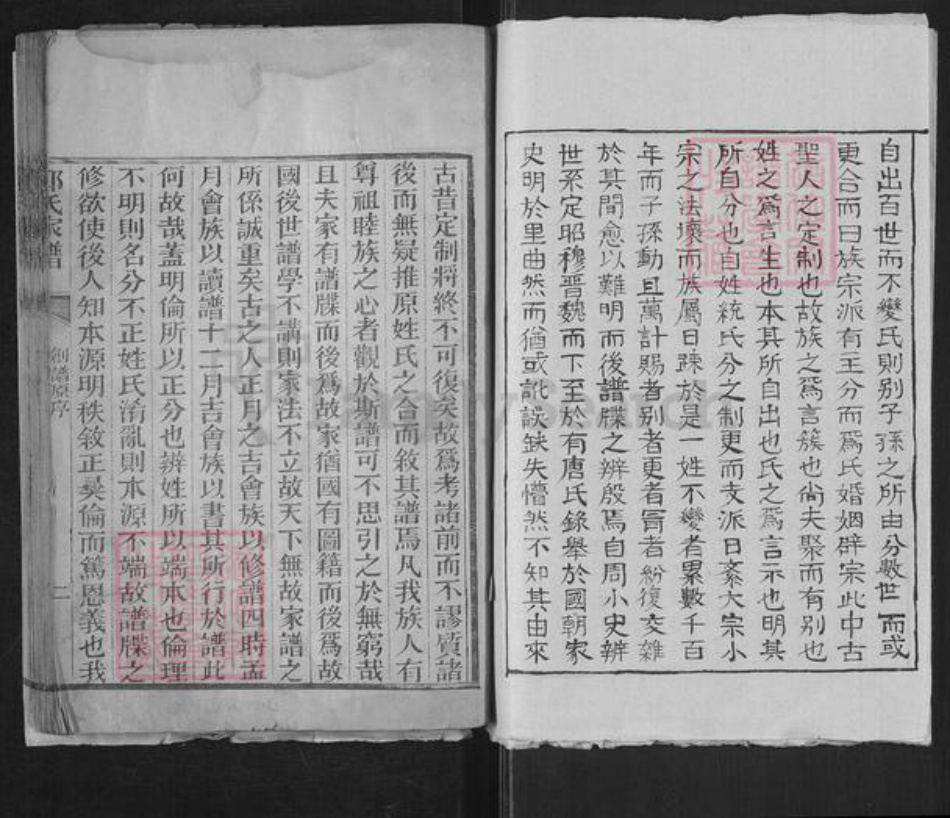 自出百世而不變氏則别子孫之所由分數世而或
更合而曰族宗派有主分而爲氏婚姻辟宗此中古
聖人之定制也故族之爲言簇也尙夫聚而有别也
姓之爲言生也本其所自出也氏之爲言示也明其
所自分也自姓統氏分之制更而支派日紊大宗小
宗之法壞而族屬日踈於是一姓不變者累數千百
年而子孫動且萬計賜者别者更者冐者紛復交雜
於其間愈以難明而後譜牒之辨殷焉自周小史辨
世系定昭穆晋魏而下至於有唐氏錄舉於國朝家
史明於里曲然而猶或訛誤缺失懵然不知其由來
古昔定制將終不可復矣故爲考諸前而不謬質諸
後而無疑推原姓氏之合而敘其譜焉凡我族人有
尊祖睦族之心者觀於斯譜可不思引之於無窮哉
且夫家有譜牒而後爲故家猶國有圖籍而後爲故
國後世譜學不講則家法不立故天下無故家譜之
所係誠重矣古之人正月之吉會族以修譜四時孟
月會族以讀譜十二月吉會族以書其所行於譜此
何故哉蓋明倫所以正分也辨姓所以端本也倫理
不明則名分不正姓氏淆亂則本源不端故譜牒之
修欲使後人知本源明秩敘正彝倫而篤恩義也我
氏家譜
創譜原序
二